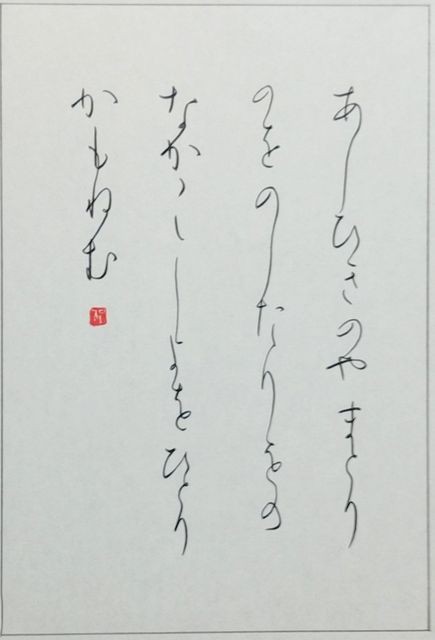 あしひきのやまとり
のをのしたりをの
なか〳〵しよをひとり
かもねむ